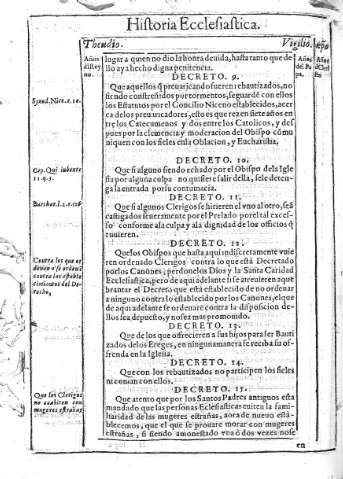 Historia Ecclesiastica.
Theudio. Vigilio.
Años
del Rey
no.
Años
del Pa
pa.
Años
lugar a quien no dio la honra deuida, hasta tanto que de
llo aya hecho digna penitencia.
DECRETO. 9.
Que aquellos que preuaricando fueren rebautizados, no
siendo constreñidos por tormentos, se guarde con ellos
los Estatutos por el Concilio Niceno establecidos, acer
ca de los preuaricadores, esto es que rezen siete años en
tre los Catecumenos y dos entre los Catolicos, y des
pues por la clemencia y moderacion del Obispo comu
niquen con los fieles en la Oblacion, y Eucharistia.
DECRETO. 10.
Que si alguno siendo echado por el Obispo de la Igle
sia por alguna culpa no quisiere salir della, se le deten
ga la entrada por su contumacia.
DECRETO. 11.
Que si algunos Clerigos se hirieren el vno al otro, seã
castigados seueramente por el Prelado por el tal exces-
so conforme a la culpa y a la dignidad de los officios q̃
tuuieren.
DECRETO. 12.
Que los Obispos que hasta aqui indiscretamente vuie
ren ordenado Clerigos contra lo que está Decretado
por los Canones, perdonelos Dios y la Santa Caridad
Ecclesiastica, pero de aqui adelante si se atreuieren a que
brantar el Decreto que está establecido de no ordenar
a ninguno contra lo establecido por los Canones, el que
de aqui adelante se ordenare contra la disposicion de-
llos sea depuesto, y no sea mas promouido.
DECRETO. 13.
Que de los que offrecieren a sus hijos para ser Bauti
zados de los Ereges, en ninguna manera se reciba su of-
frenda en la Iglesia.
DECRETO. 14.
Que con los rebautizados no participen los fieles
ni coman con ellos.
DECRETO. 15.
Que atento que por los Santos Padres antigos esta
mandado que las personas Ecclesiasticas euiten la fami-
liaridad de las mugeres estrañas, aora de nueuo esta-
blecemos, que el que se prouare morar con mugeres
estrañas, si siendo amonestado vna ó dos vezes nose
en
Synod. Nice. c. 11.
Cap. Qui iubente
11. q. 3.
Burchar.
Contra los que or
denan
contra los establ
cimientos del De-
recho.
Que los Clerigos
no
mugeres estrañas.